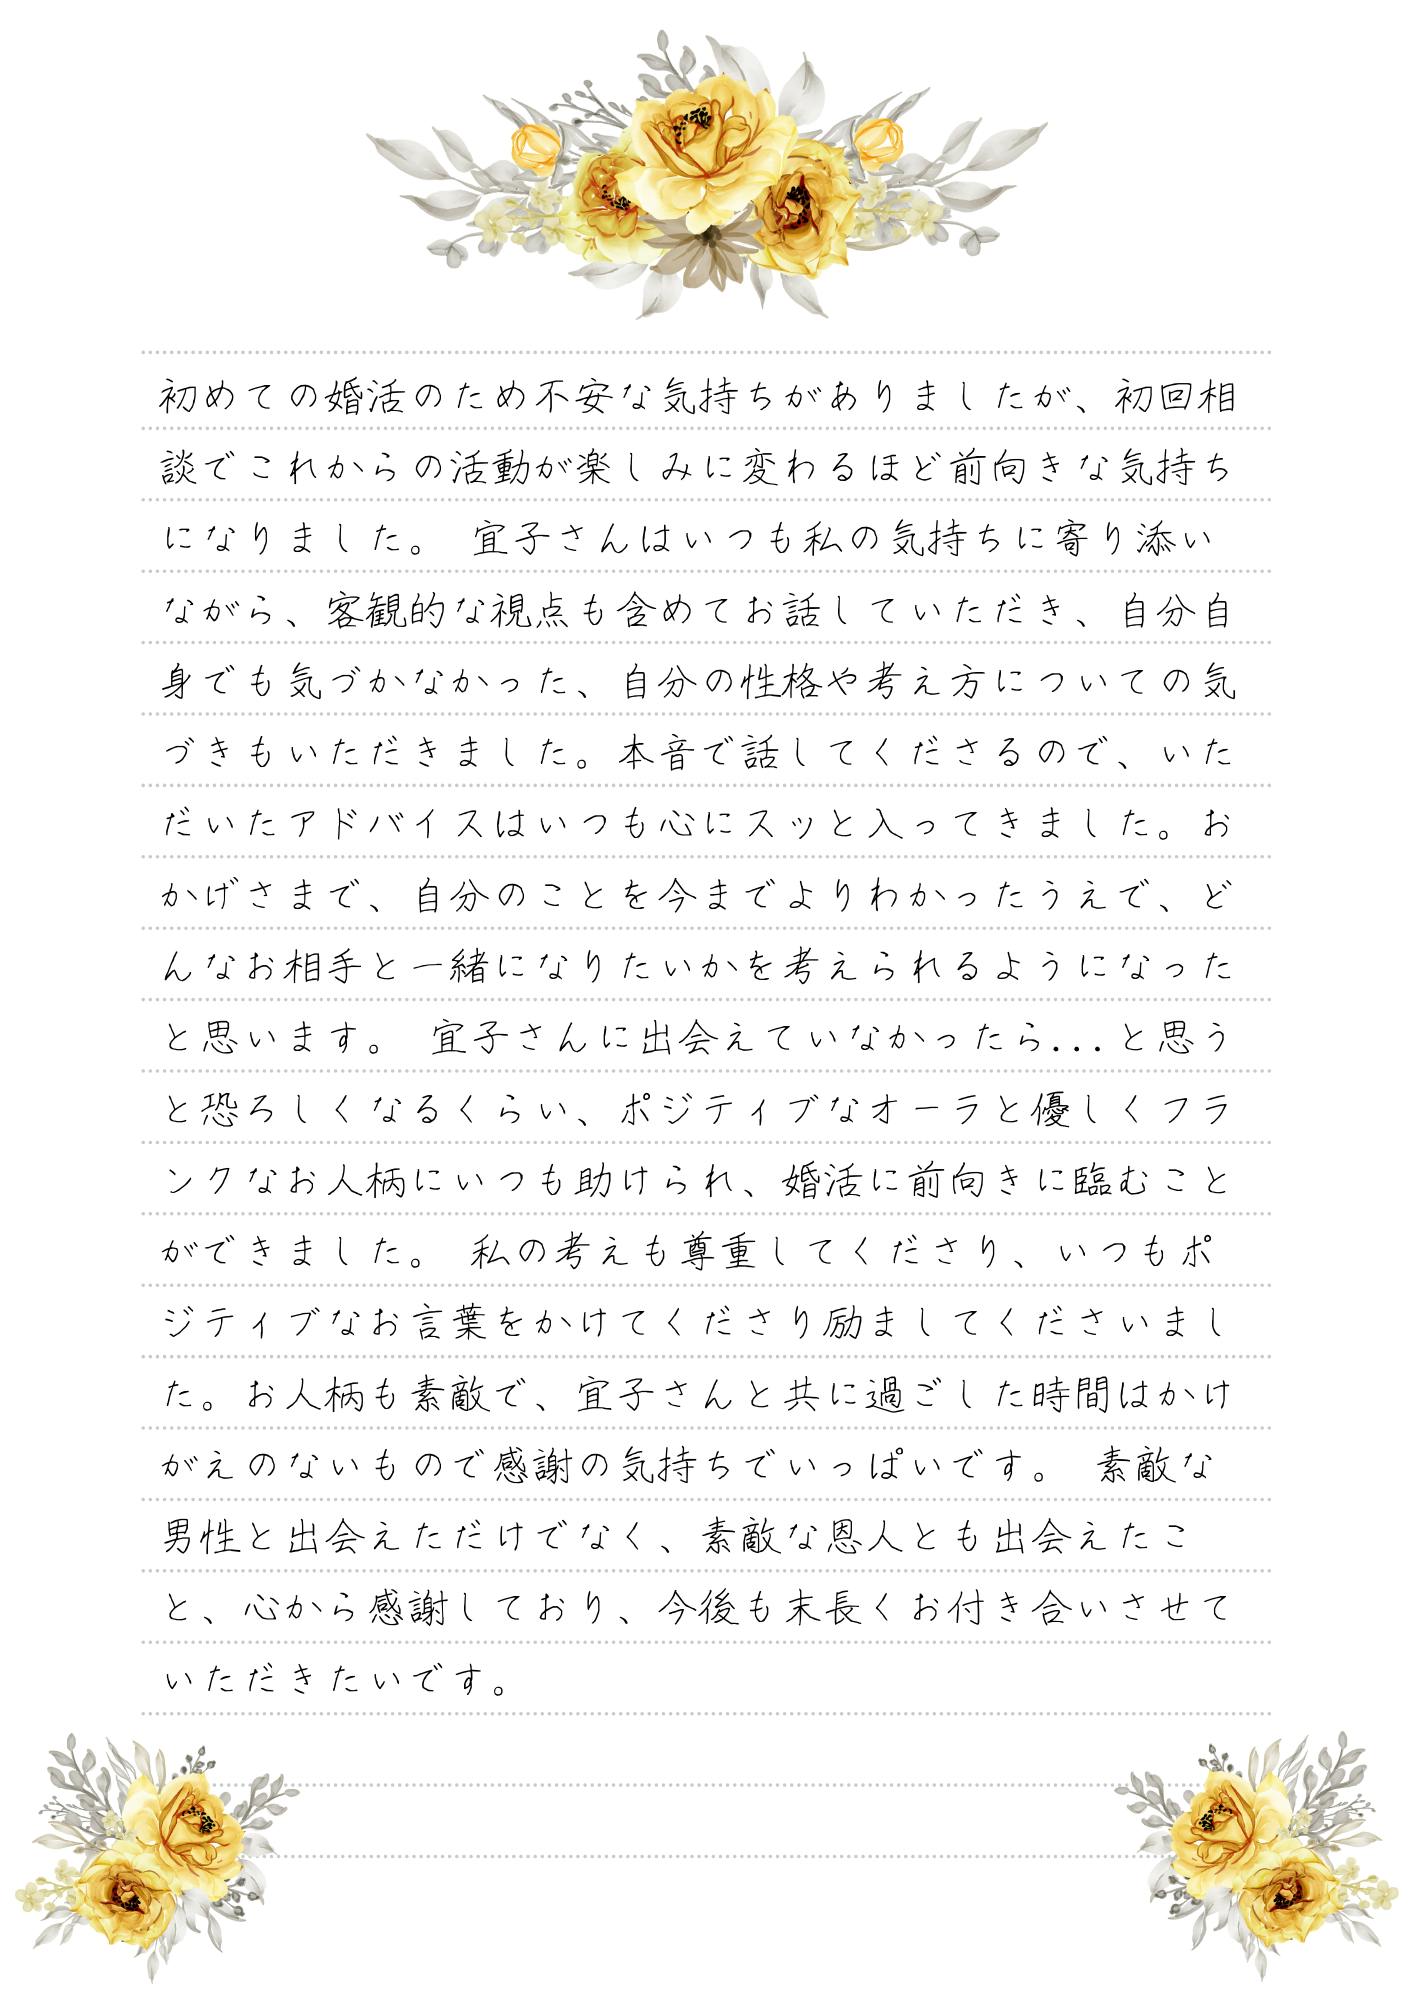 初めての婚活のため不安な気持ちがありましたが、初回相
談でこれからの活動が楽しみに変わるほど前向きな気持ち
になりました。 宜子さんはいつも私の気持ちに寄り添い
ながら、客観的な視点も含めてお話していただき、自分自
身でも気づかなかった、自分の性格や考え方についての気
づきもいただきました。本音で話してくださるので、いた
だいたアドバイスはいつも心にスッと入ってきました。お
かげさまで、自分のことを今までよりわかったうえで、ど
んなお相手と一緒になりたいかを考えられるようになった
と思います。 宜子さんに出会えていなかったら...と思う
と恐ろしくなるくらい、ポジティブなオーラと優しくフラ
ンクなお人柄にいつも助けられ、婚活に前向きに臨むこと
ができました。 私の考えも尊重してくださり、いつもポ
ジティブなお言葉をかけてくださり励ましてくださいまし
た。お人柄も素敵で、宜子さんと共に過ごした時間はかけ
がえのないもので感謝の気持ちでいっぱいです。 素敵な
男性と出会えただけでなく、素敵な恩人とも出会えたこ
と、心から感謝しており、今後も末長くお付き合いさせて
いただきたいです。